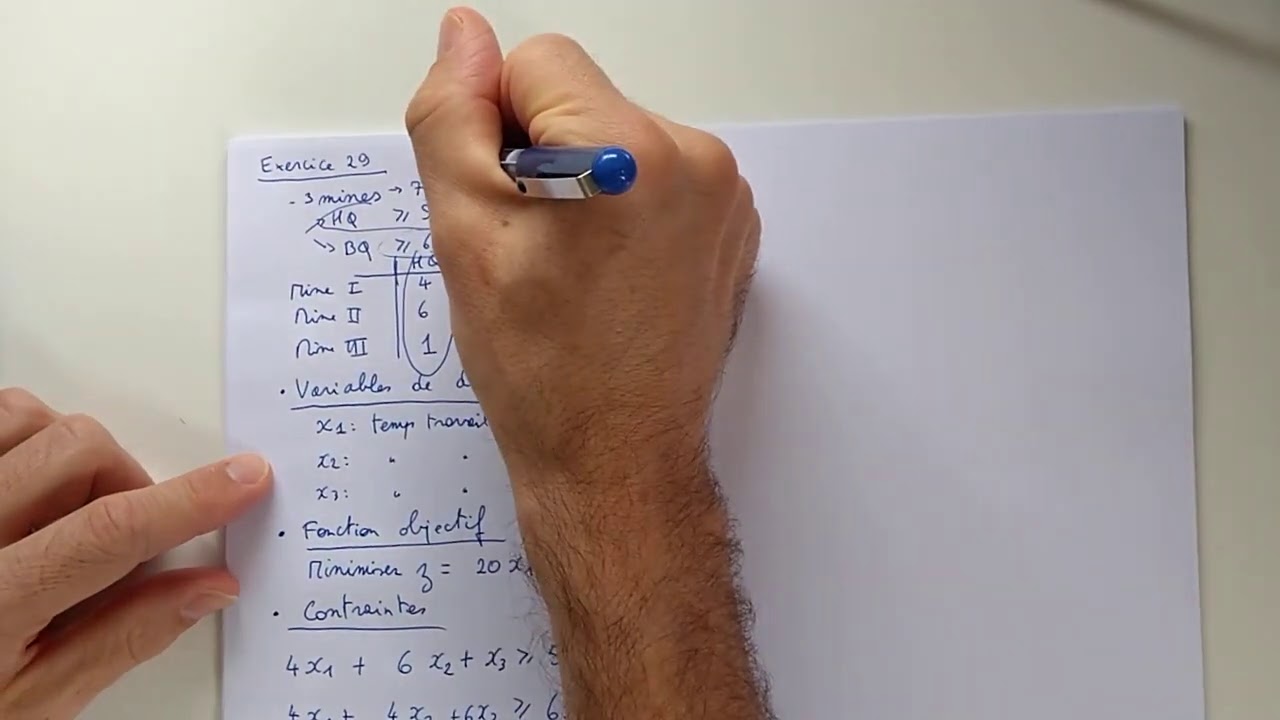 Exercice 29
- 3 mines → 7
HQ ≥ 5
↳ BQ ≥ 6
HQ
Mine I 4
Mine II 6
Mine III 1
• Variables de d
x1: temp travail
x2: " "
x3: " "
• Fonction objectif
Minimiser z = 20 x
• Contraintes
4x1 + 6 x2 + x3 ≥ 5
4x1 + 4x2 + 6x3 ≥ 6